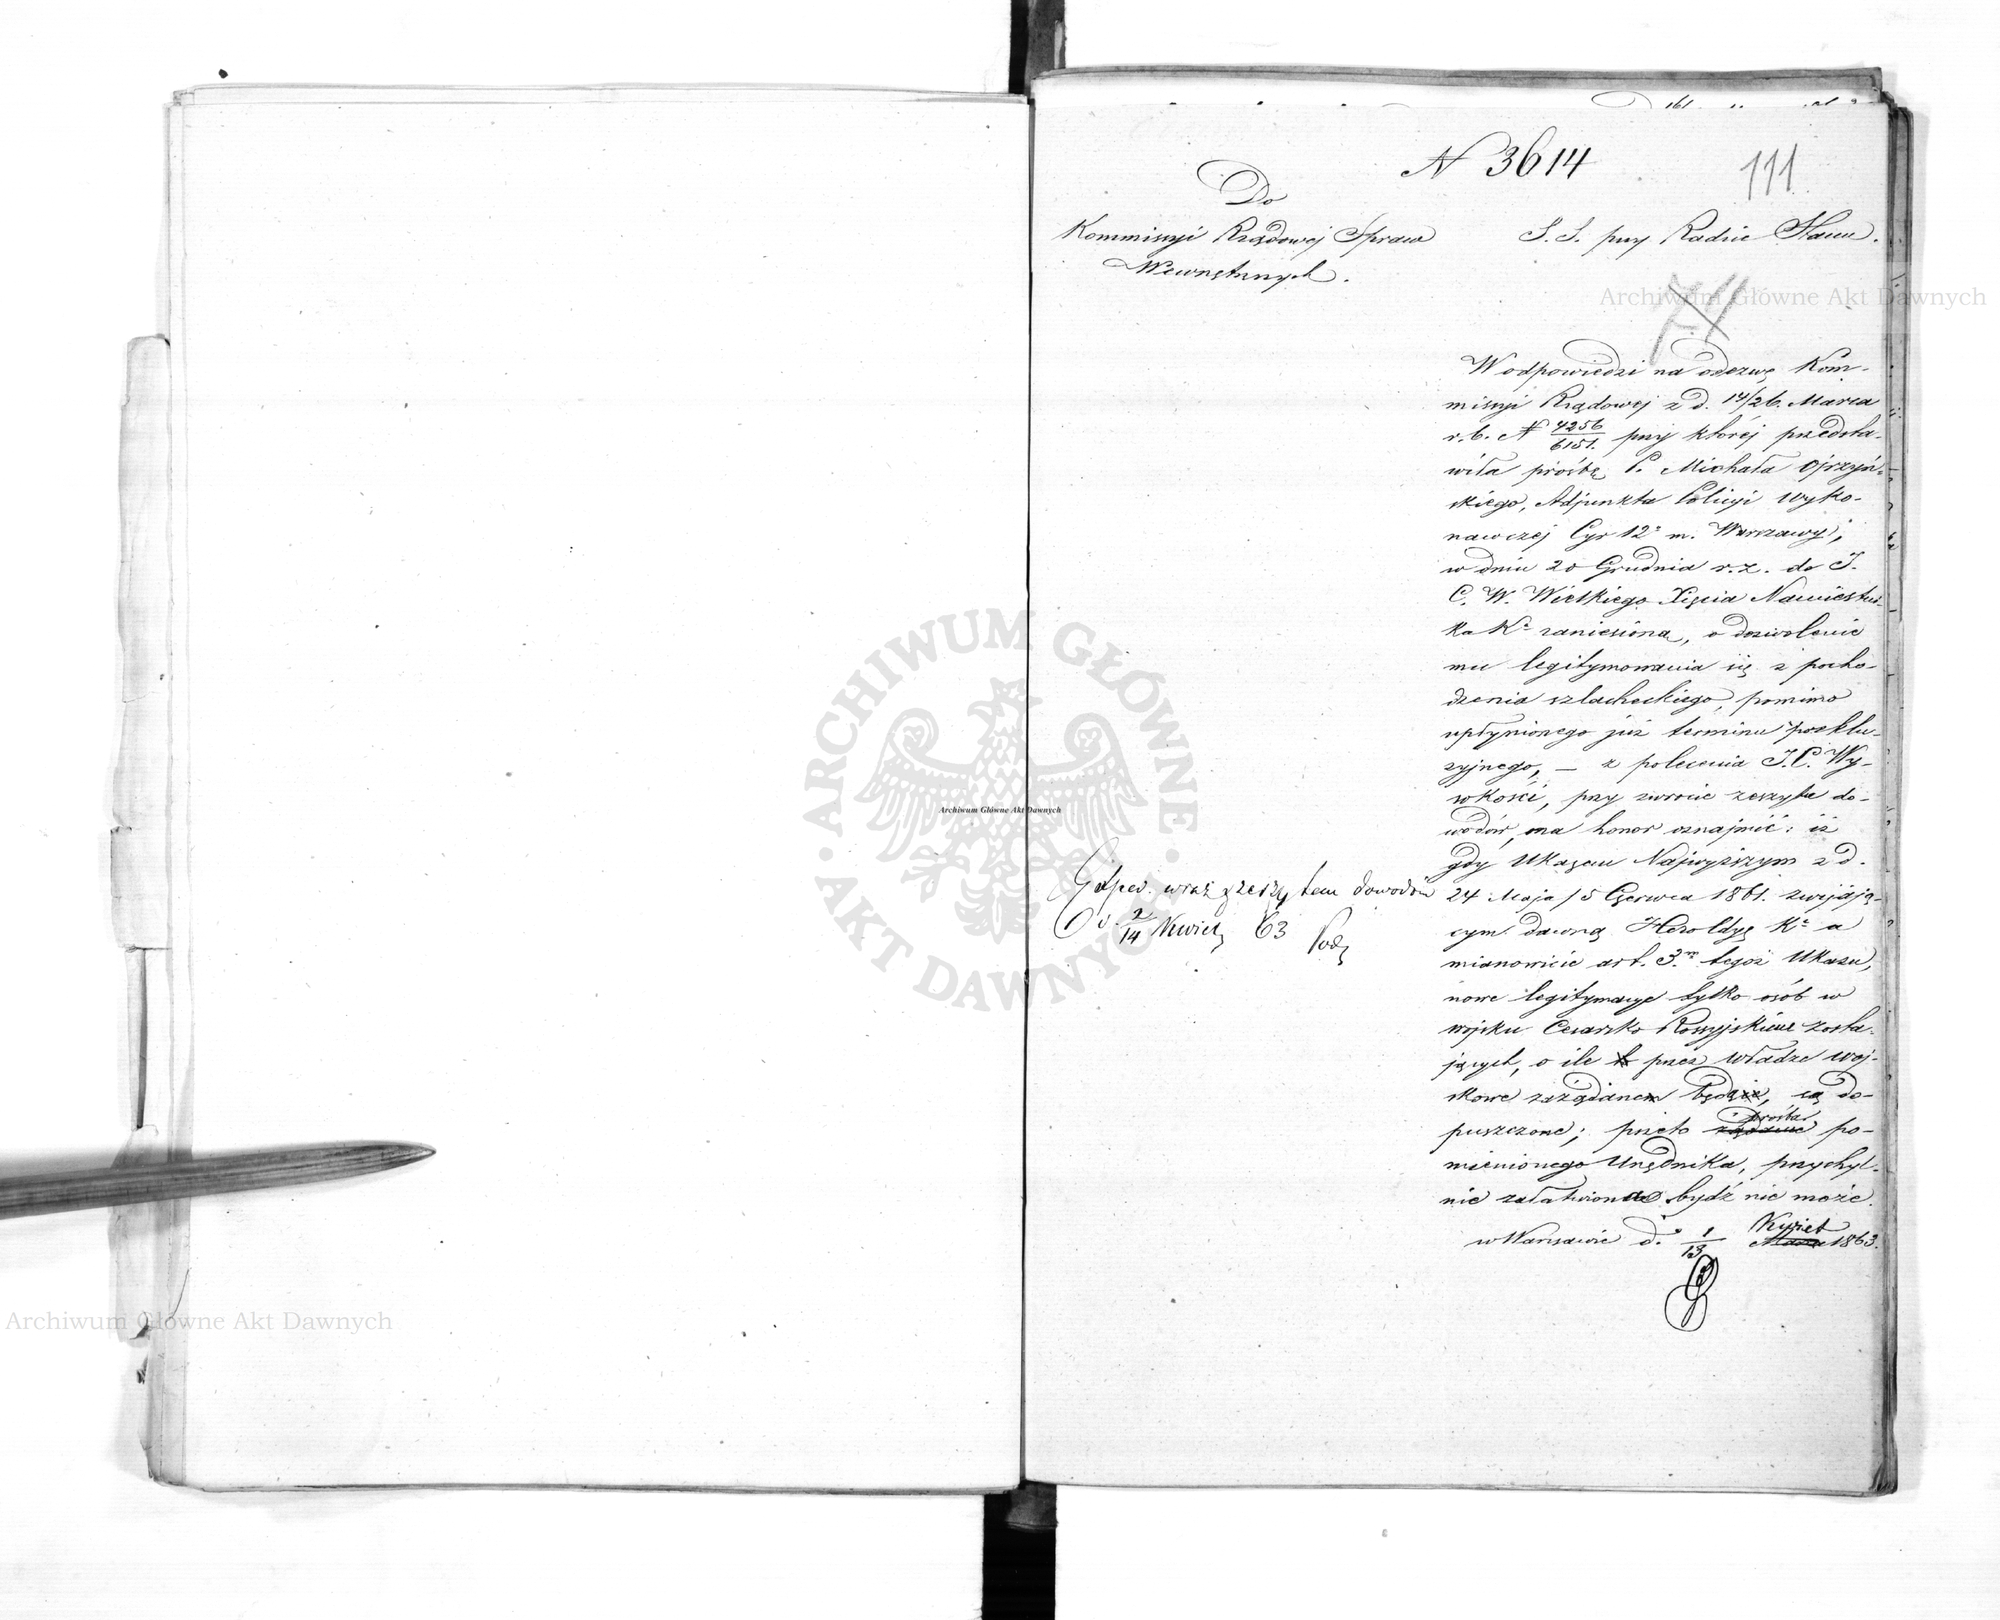 N 3614
111
Do
Kommissyi Rządowej Spraw
Wewnętrznych.
S. S. przy Radzie Stanu.
W odpowiedzi na odezwę Kom-
missyi Rządowej z d. 14/26. Marca
r. b. N 4256/6151. przy któréj przedsta-
wiła prośbę P. Michała Ojrzyń-
skiego, Adjunkta Policyi wyko-
nawczéj Cyr 12º m. Warszawy,
w dniu 20 Grudnia r. z. do J.
C. W. Wielkiego Xięcia Namiestni-
ka Kª zaniesioną, o dozwolenie
mu legitymowania się z pocho-
dzenia szlacheckiego, pomimo
upłynionego już terminu prekluzyjnego, — z polecenia J. C. Wy-
sokości, przy zwrocie zeszytu do-
wodów, ma honor oznajmić: iż
gdy Ukazem Najwyższym z d.
24 Maja / 5 Czerwca 1861. zwijają-
cym dawną Heroldyę Kª a
mianowicie art. 3m tegoż Ukazu,
nowe legitymacye tylko osób w
wojsku Cesarsko Rossyjskiem zosta-
jących, o ile przez władze woj-
skowe zażądane będą, są do-
puszczone; przeto prośba po-
mienionego Urzędnika, przychyl-
nie załatwioną bydź nie może.
w Warszawie d. 1/13 Kwiet 1863.
Exped. wraz z zeszytem dowodów
d. 2/14 Kwiet 63
Archiwum Główne Akt Dawnych
ARCHIWUM GŁÓWNE AKT DAWNYCH
Archiwum Główne Akt Dawnych
Archiwum Główne Akt Dawnych